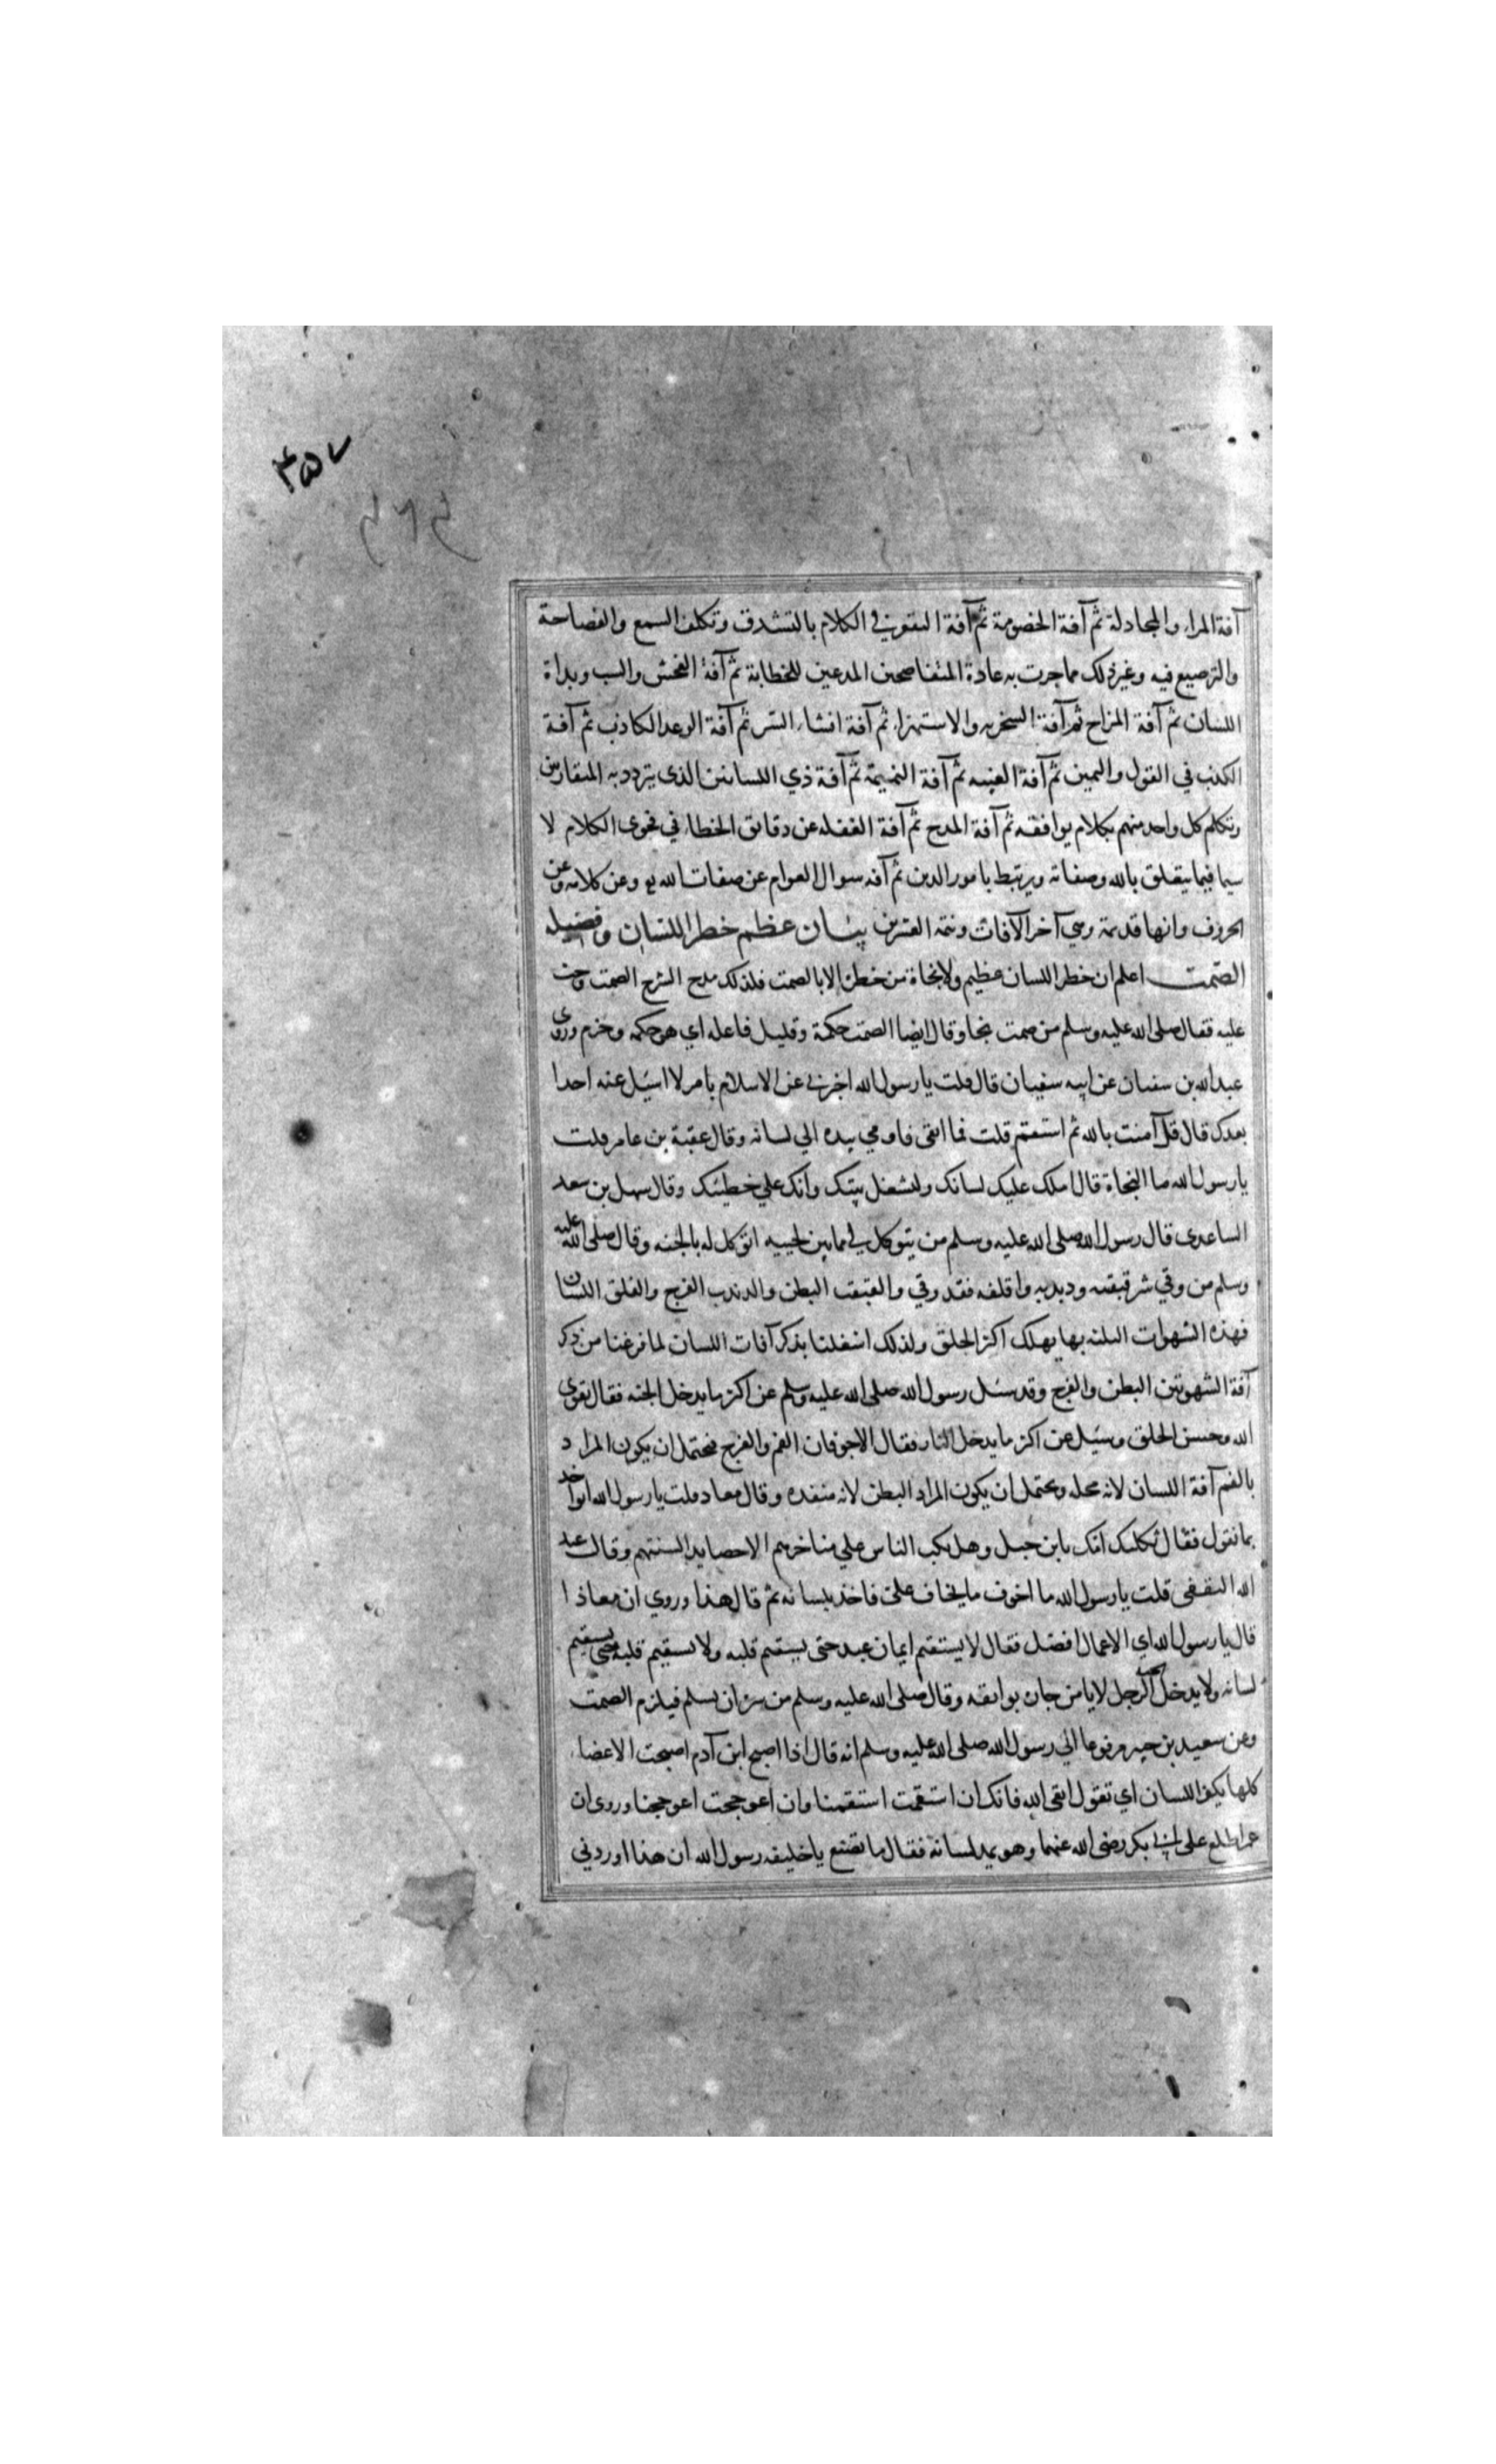 ۴۵۷
آفة المراء والمجادلة ثم آفة الخصومة ثم آفة التقعر في الكلام بالتشدق وتكلف السمع والفصاحة
والترصيع فيه وغير ذلك مما جرت به عادة المتفاصحين المدعين للخطابة ثم آفة الفحش والسب وبذاة
اللسان ثم آفة المزاح ثم آفة السخريه والاستهزاء ثم آفة افشاء السر ثم آفة الوعد الكاذب ثم آفة
الكذب في القول واليمين ثم آفة الغيبه ثم آفة النميمة ثم آفة ذي اللسانين الذى يتردد به المتقارضين
وتكلم كل واحد منهم بكلام يوافقه ثم آفة المدح ثم آفة الغفله عن دقايق الخطاء في فحوى الكلام لا
سيما فيما يتعلق بالله وصفاته ويرتبط بامور الدين ثم آفه سوال العوام عن صفات الله وعن كلامه وعن
الحروف وانها قديمة وهي آخر الآفات وتتمة العشرين بيان عظم خطر اللسان وفضيله
الصمت اعلم ان خطر اللسان عظيم ولا نجاة من خطره الا بالصمت فلذلك مدح الشرع الصمت وحث
عليه فقال صلى الله عليه وسلم من صمت نجا وقال ايضا الصمت حكمة وقليل فاعله اي هو حكمه وحزم وروى
عبد الله بن سفيان عن ابيه سفيان قال قلت يا رسول الله اخبرني عن الاسلام بامر لا اسيل عنه احدا
بعدك قال قل آمنت بالله ثم استقم قلت فما اتقى فاومي بيده الي لسانه وقال عقبة بن عامر قلت
يا رسول الله ما النجاة قال املك عليك لسانك وليسعك بيتك وابك علي خطيئتك وقال سهل بن سعد
الساعدى قال رسول الله صلى الله عليه وسلم من يتوكل لي بما بين لحييه اتوكل له بالجنه وقال صلى الله عليه
وسلم من وقي شر قبقبه وذبذبه ولقلقه فقد وقي والقبقب البطن والذبذب الفرج واللقلق اللسان
فهذه الشهوات الثلثه بها يهلك اكثر الخلق ولذلك اشغلنا بذكر آفات اللسان لما فرغنا من ذكر
آفة الشهوتين البطن والفرج وقد سئل رسول الله صلى الله عليه وسلم عن اكثر ما يدخل الجنه فقال تقوى
الله وحسن الخلق وسئيل عن اكثر ما يدخل النار فقال الاجوفان الفم والفرج فيحتمل ان يكون المراد
بالفم آفة اللسان لانه محله ويحتمل ان يكون المراد البطن لانه منفذه وقال معاد قلت يا رسول الله انواخد
بما نقول فقال ثكلتك امك يا بن جبل وهل يكب الناس علي مناخرهم الا حصايد السنتهم وقال عبد
الله الثقفى قلت يا رسول الله ما اخوف ما يخاف علي فاخذ بلسانه ثم قال هذا وروي ان معاذا
قال يا رسول الله اي الاعمال افضل فقال لا يستقيم ايمان عبد حتى يستقيم قلبه ولا يستقيم قلبه حتى يستقيم
لسانه ولا يدخل الرجل لا يامن جاره بوايقه وقال صلى الله عليه وسلم من سره ان يسلم فيلزم الصمت
وعن سعيد بن جبير مرفوعا الي رسول الله صلى الله عليه وسلم انه قال اذا اصبح ابن آدم اصبحت الاعضاء
كلها تكفر اللسان اي تقول اتقى الله فانك ان استقمت استقمنا وان اعوججت اعوججنا وروى ان
عمر اطلع على ابي بكر رضى الله عنهما وهو يمد لسانه فقال ما تصنع يا خليفه رسول الله ان هذا اوردني